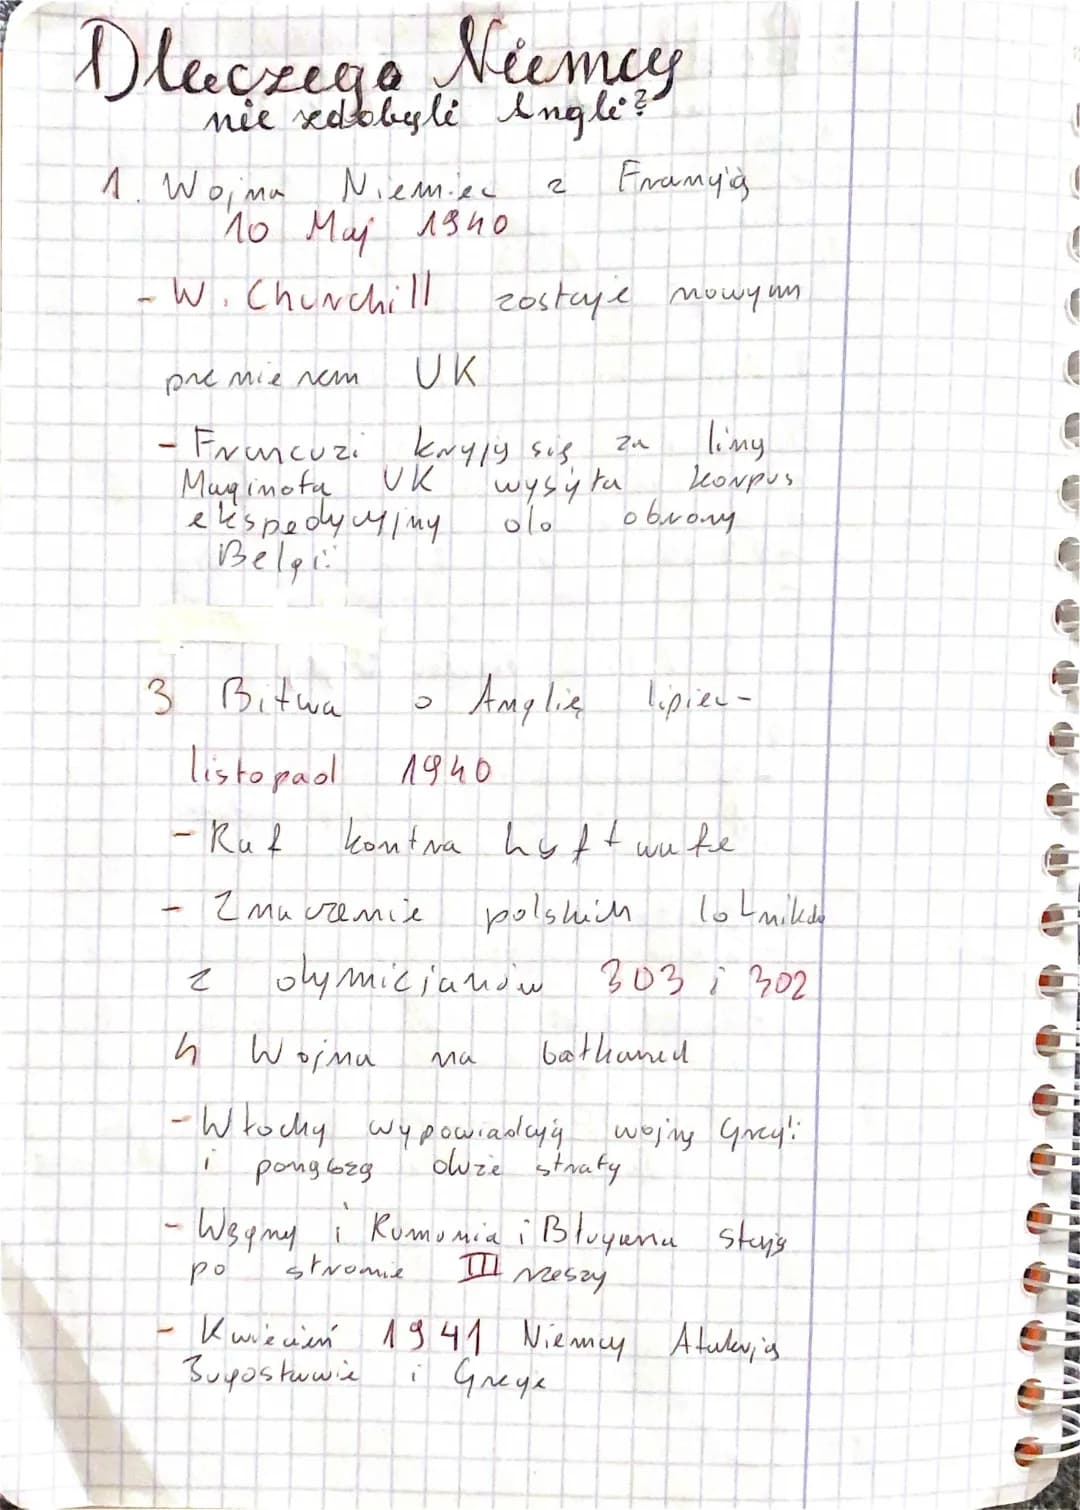 Dlaczego Niemcy
nie zdobyli Angli?
1. Wojna Niemiec z Francją
10 Maj 1940
- W. Churchill zostaje nowym
premierem UK
- Francuzi kryją się za liną
Maginota UK wysyła korpus
ekspedycyjny do obrony
Belgii
3 Bitwa o Anglię lipiec-
listopad 1940
- Raf kontra luftwafe
- Znaczenie polskich lotników
z dymicjanów 303 i 302
4 Wojna na bałkanach
- Włochy wypowiadają wojnę Grecji
i ponąszą duże straty
- Węgry i Rumunia i Bługaria stają
po stronie III rzeszy
- Kwiecień 1941 Niemcy Atakują
Jugosławie i Grecje